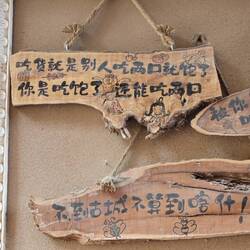 吃货就是别人吃两口就饱了
你是吃饱了还能吃两口
不到古城不算到喀什!